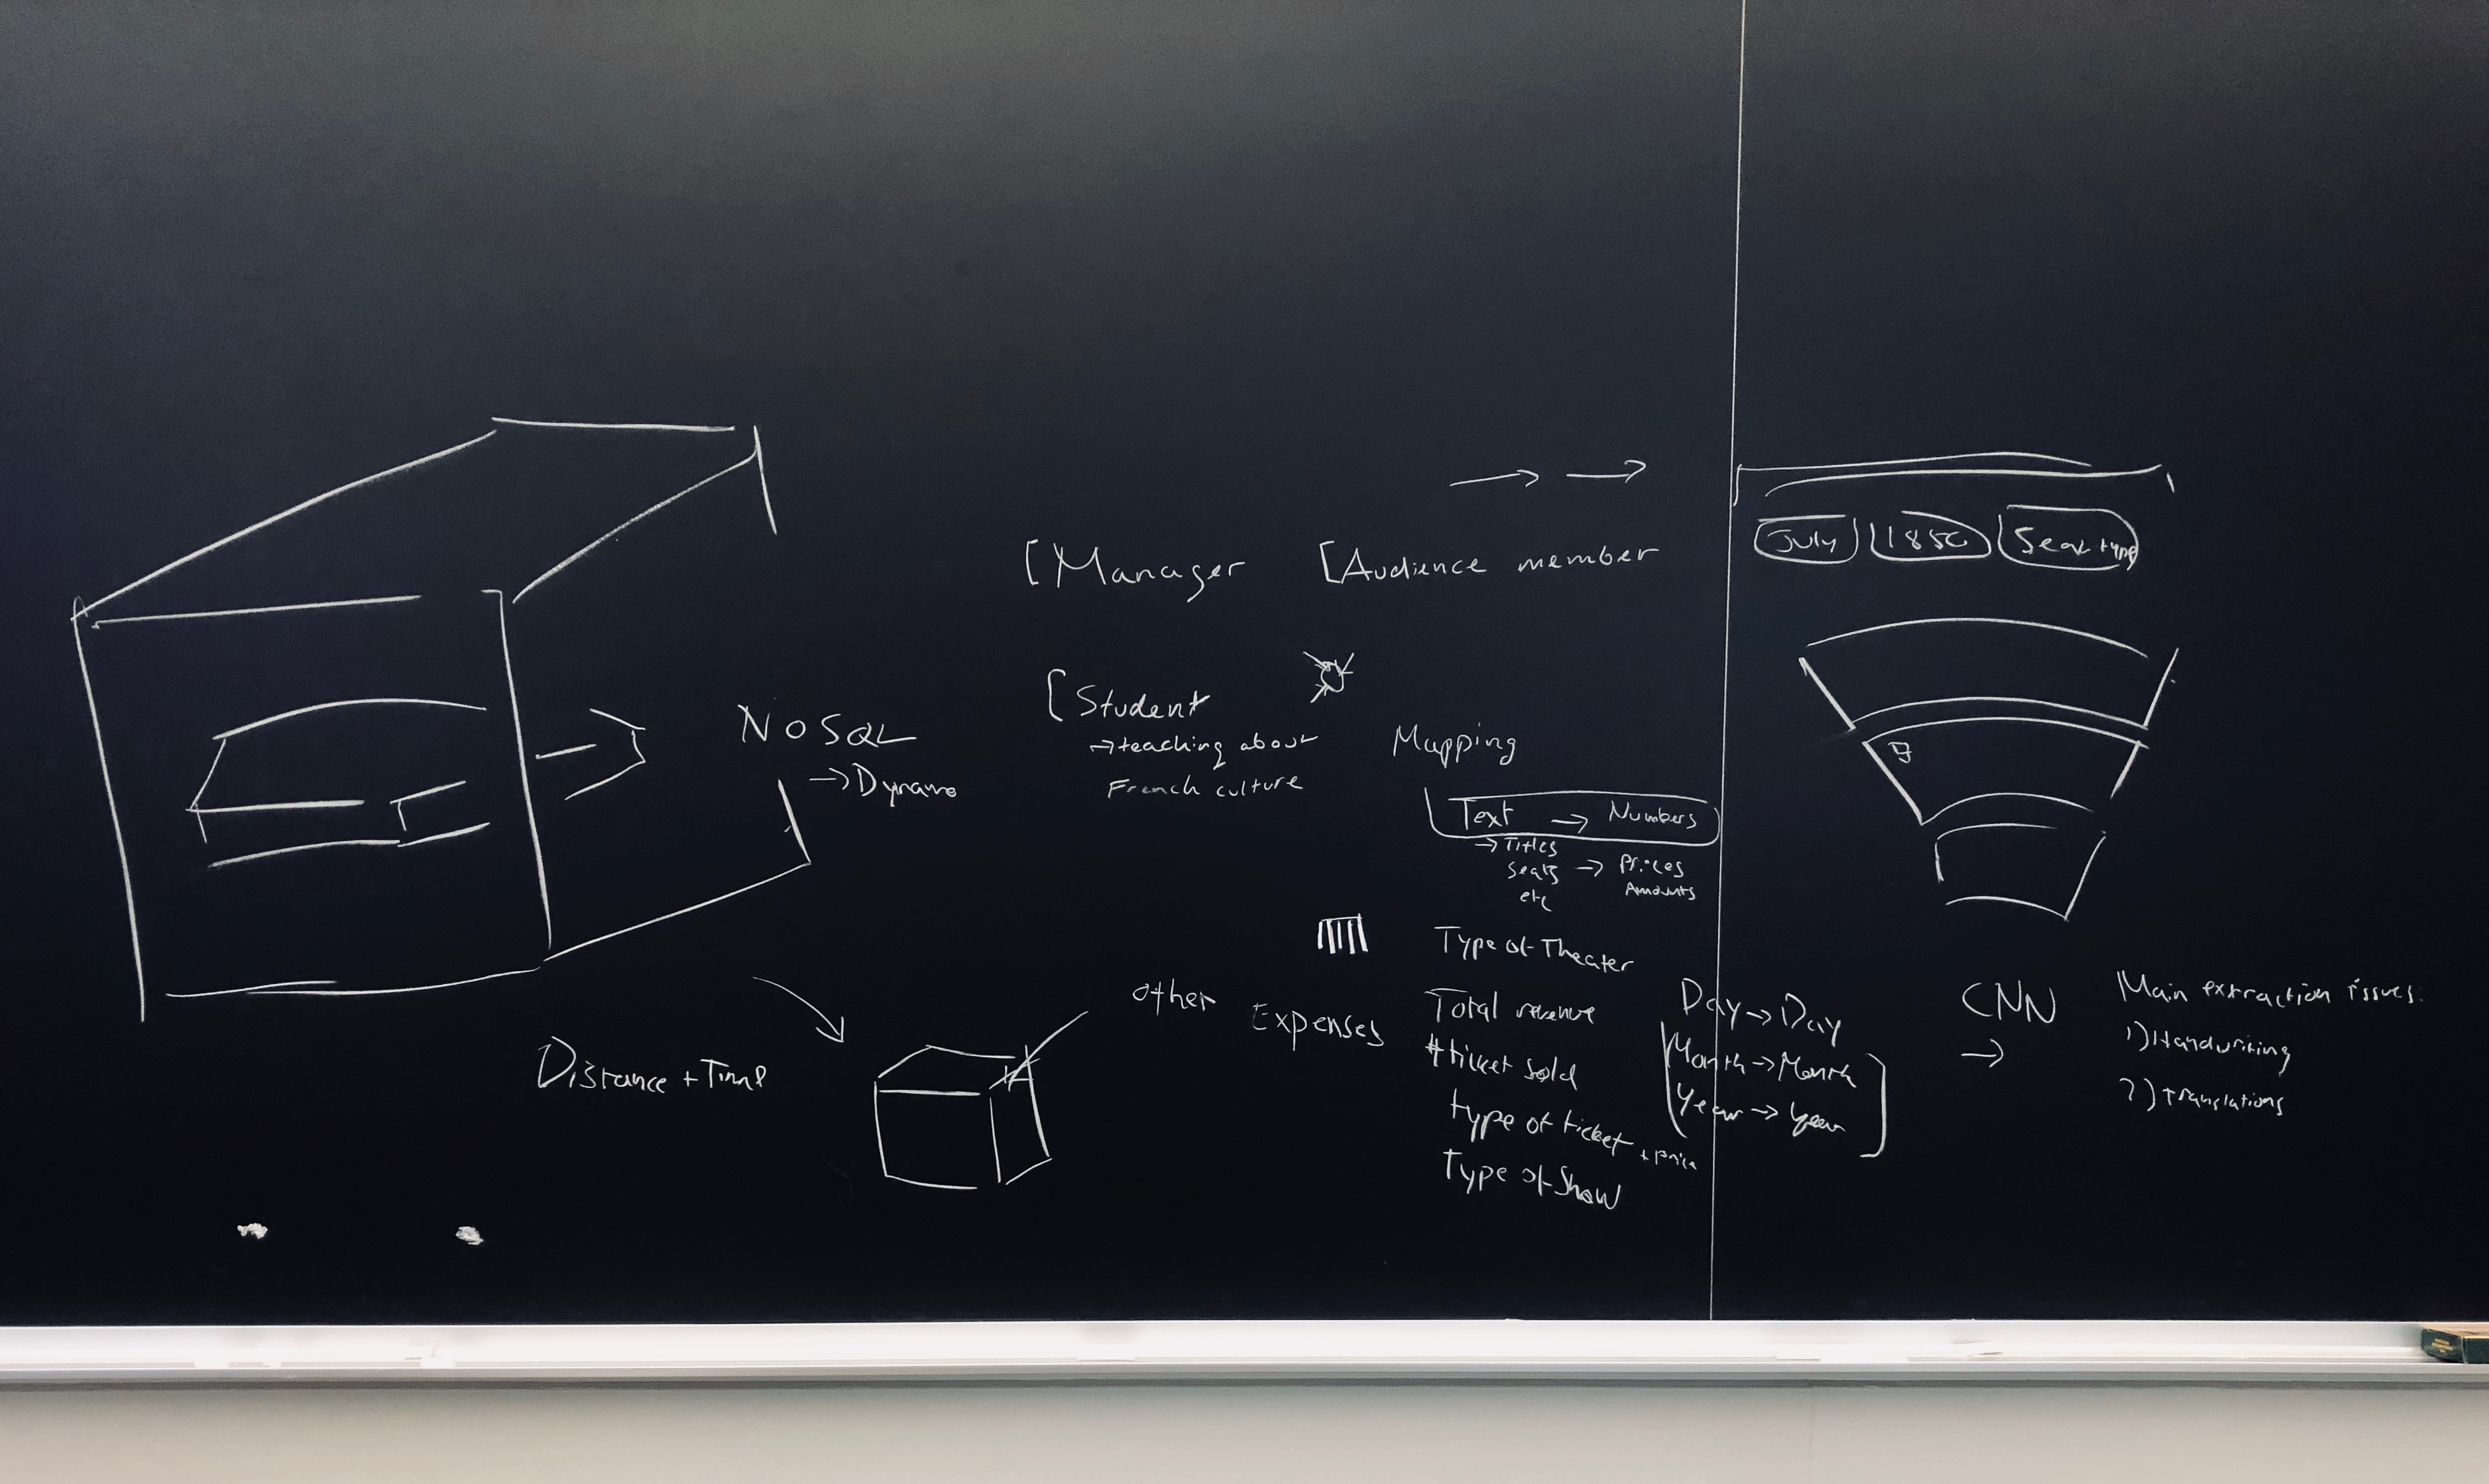 NoSQL
→Dynamo
Distance + Time
[Manager
[Audience member
[Student
→teaching about
French culture
Mapping
Text → Numbers
→Titles
seats → Prices
etc
Amounts
other
Expenses
Type of Theater
Total revenue
#ticket sold
type of ticket + price
Type of Show
Day→Day
Month→Month
Year→Year
July
1850
Seat type
CNN
→
Main extraction issues:
1) Handwriting
2) translations